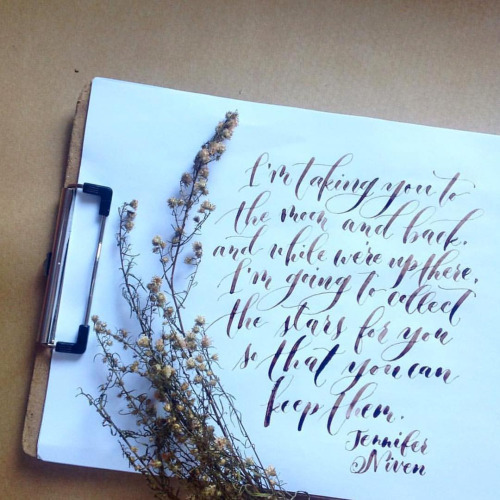 I'm taking you to
the moon and back.
and while we're up there,
I'm going to collect
the stars for you
so that you can
keep them.
Jennifer
Niven